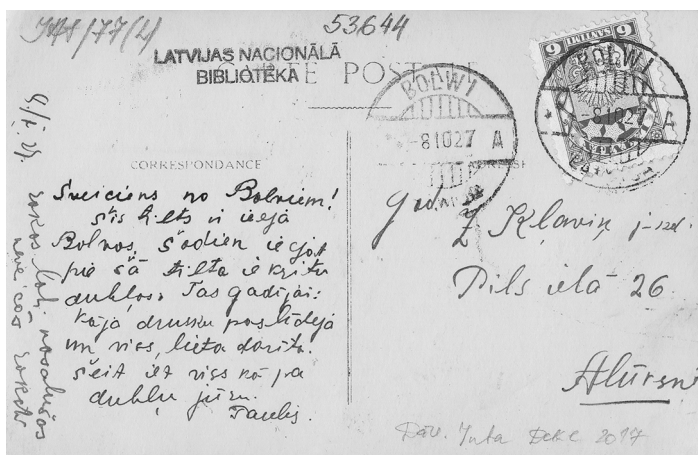 53644
LATVIJAS NACIONĀLĀ
BIBLIOTĒKA
CARTE POSTALE
BOLWI
-81027 A
6 6
BOLWI
-81027 A
LATVIJA
CORRESPONDANCE
ADRESSE
Sveiciens no Bolviem!
Šis tilts ir ieejā
Bolvos, šodien ieejot
pie šā tilta iekritu
dubļos. Tas gadījās:
kājā drusku paslīdēja
un viss, lieta darīta.
Šeit iet viss kā pa
dubļu jūru.
Paulis.
rokas loti nosalušas
God.
Z Kļaviņ j-dze.
Pils ielā 26
Alūksnē
Dāv. Juta 2017